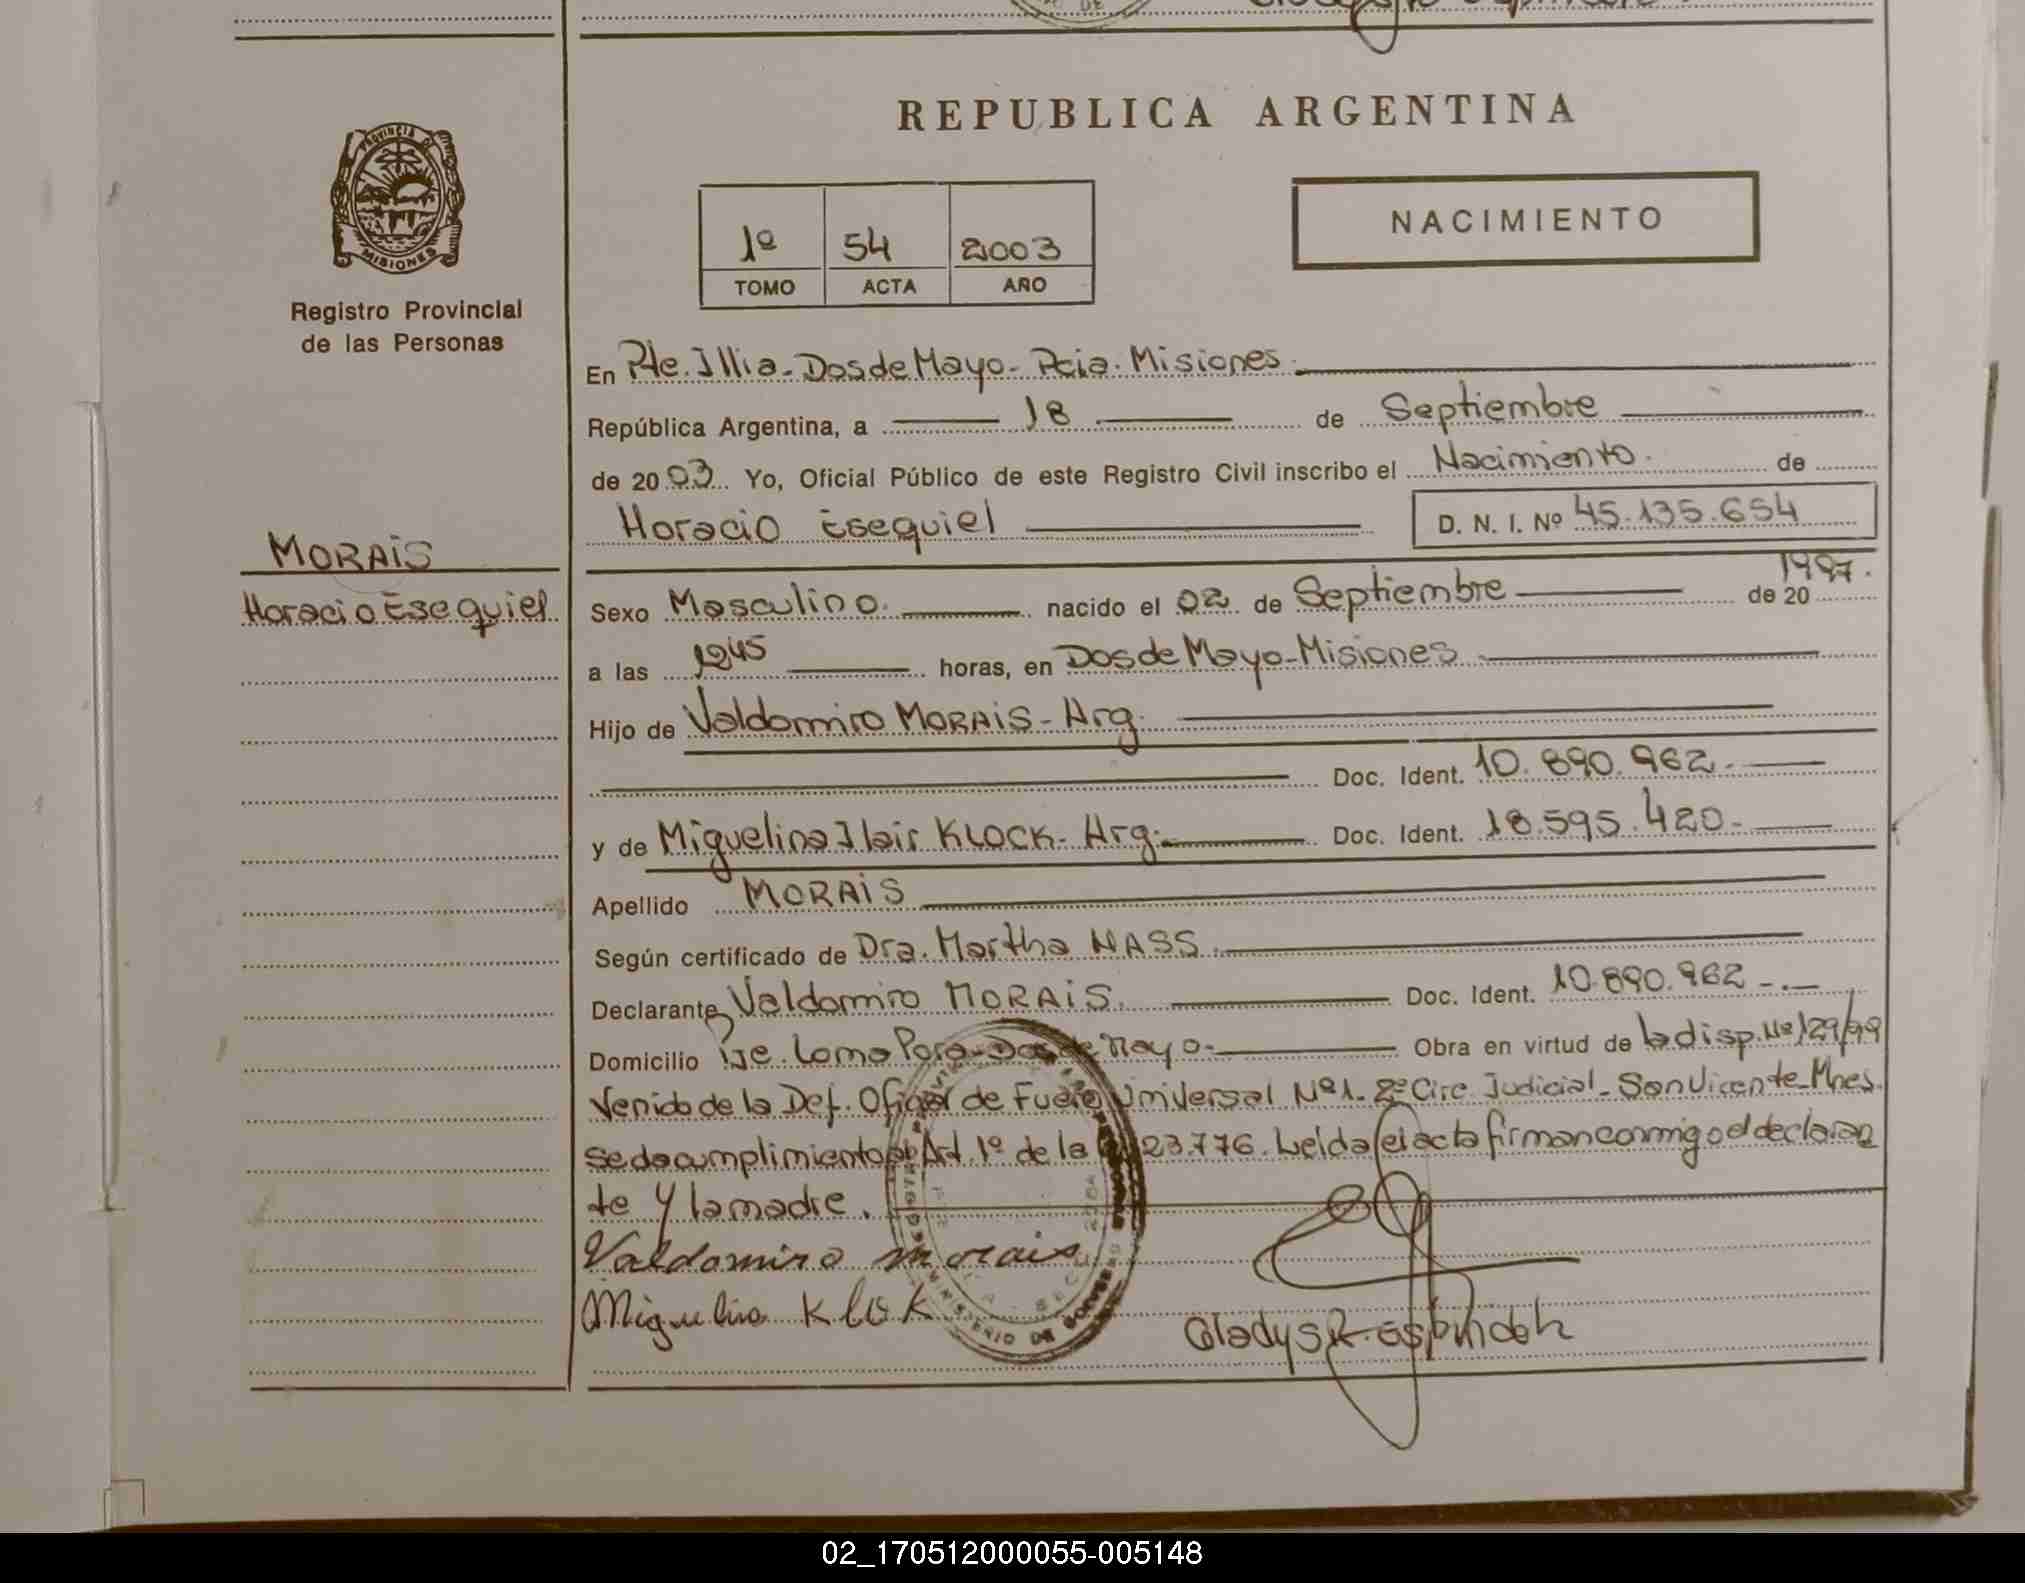 REPUBLICA ARGENTINA
PROVINCIA DE
MISIONES
Registro Provincial
de las Personas
1º 54 2003
TOMO ACTA AÑO
NACIMIENTO
En Pte. Illia - Dos de Mayo - Pcia. Misiones.
República Argentina, a 18 de Septiembre
de 2003 Yo, Oficial Público de este Registro Civil inscribo el Nacimiento. de
Horacio Esequiel D. N. I. Nº 45.135.654
MORAiS
Horacio Esequiel
Sexo Masculino. nacido el 02 de Septiembre de 20 1997.
a las 1245 horas, en Dos de Mayo - Misiones
Hijo de Valdomiro MORAiS - Arg.
Doc. Ident. 10.890.962.
y de Miguelina Ilair KLOCK - Arg. Doc. Ident. 18.595.420-
Apellido MORAiS
Según certificado de Dra. Martha NASS.
Declarante Valdomiro MORAiS. Doc. Ident. 10.890.962 -.-
Domicilio Loma Dos de Mayo - Obra en virtud de la disp. Nº 129/99
Venido de la Def. Oficial de Fuero Universal Nº 1 - 2º Circ. Judicial - San Vicente - Mnes.
se da cumplimiento al Art. 1º de la 23.776. Leida el acta firman conmigo el declaran
te y la madre.
Valdomiro morais
Miguelina KlOK
Gladys R. Espindola
MINISTERIO DE GOBIERNO
02_170512000055-005148